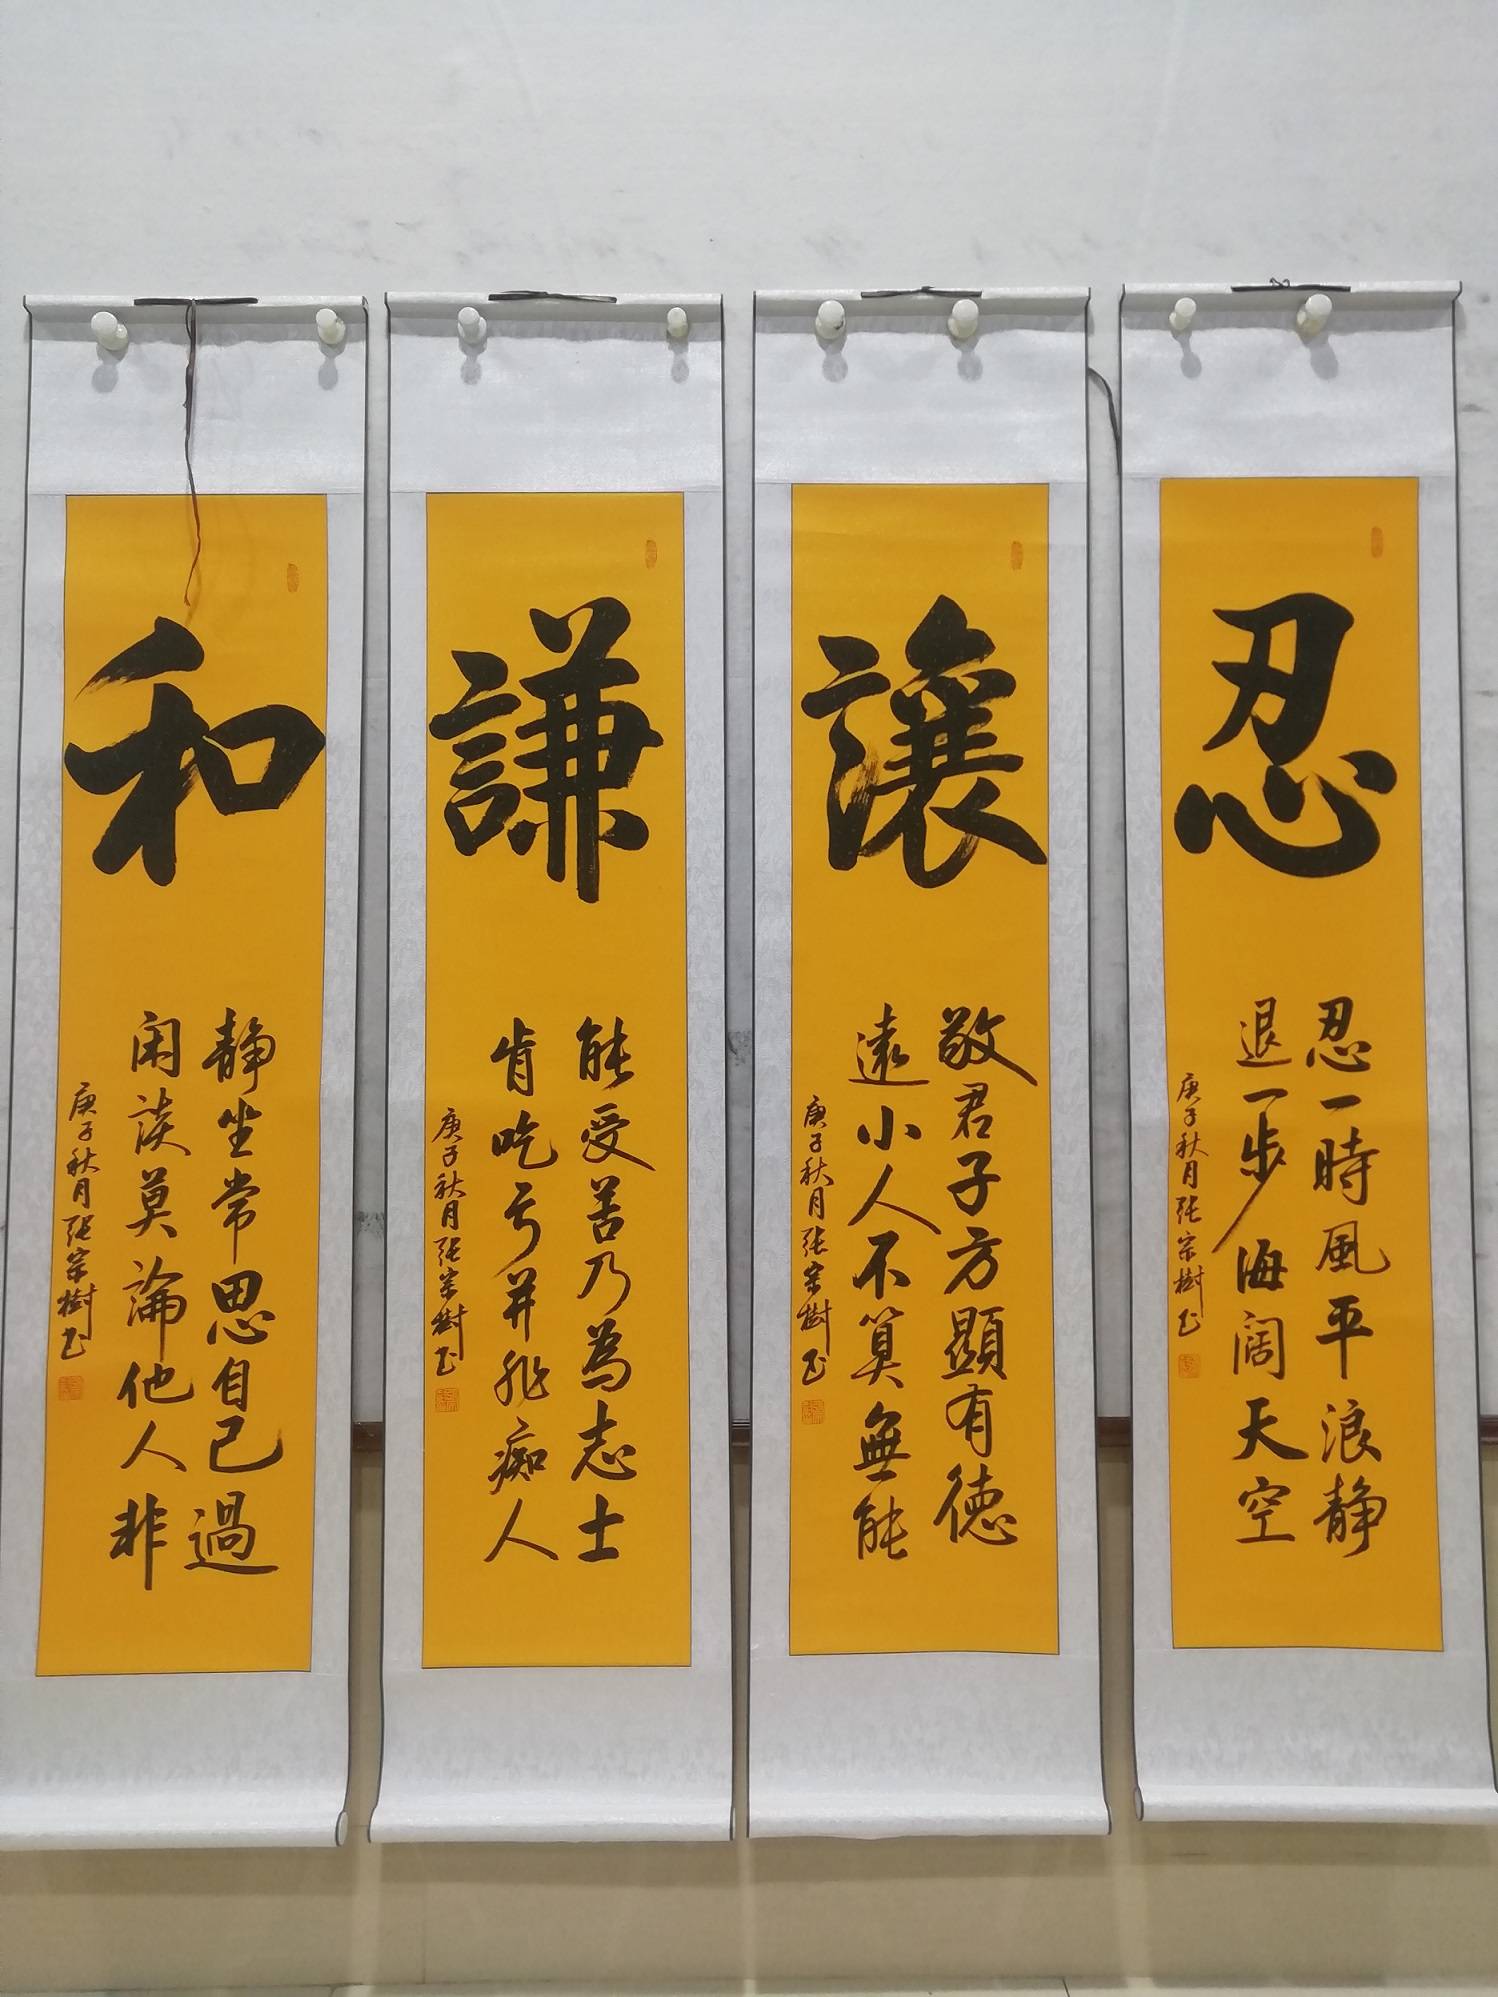 忍
忍一時風平浪静
退一步海阔天空
庚子秋月张宗樹书
讓
敬君子方顯有德
遠小人不算無能
庚子秋月张宗樹书
謙
能受苦乃為志士
肯吃亏并非痴人
庚子秋月张宗樹书
和
静坐常思自己過
闲談莫論他人非
庚子秋月张宗樹书